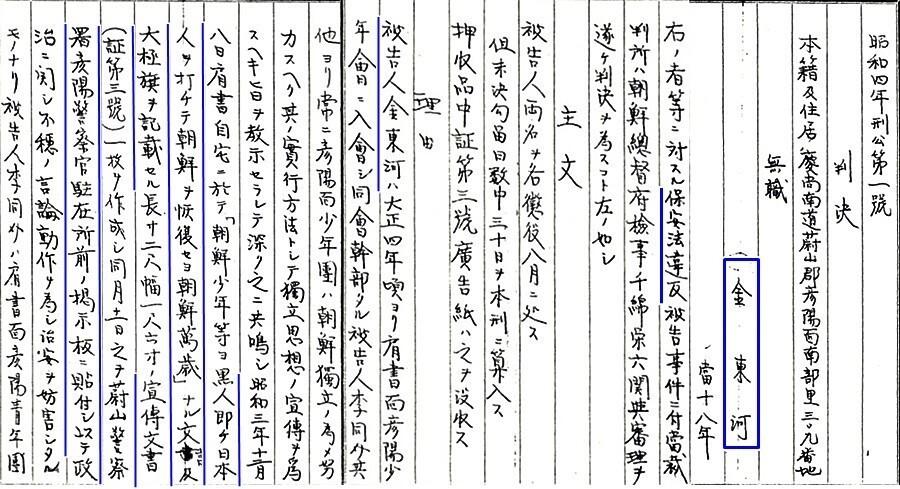 昭和四年刑公第一號
判決
本籍及住居 慶尚南道蔚山郡彦陽面南部里三〇九番地
無職
金東河
當十八年
右ノ者等ニ対スル保安法違反被告事件ニ付當裁
判所ハ朝鮮總督府検事千綿栄六関與審理ヲ
遂ケ判決ヲ為スコト左ノ如シ
主文
被告人両名ヲ各懲役八月ニ処ス
但未決勾留日数中三十日ヲ本刑ニ算入ス
押收品中証第三號廣告紙ハ之ヲ没收ス
理由
被告人金東河ハ大正四年頃ヨリ肩書面彦陽少
年會ニ入會シ同會幹部タル被告人李同外共
他ヨリ常ニ彦陽面少年團ハ朝鮮獨立ノ為メ努
力スヘク其ノ實行方法トシテ獨立思想ノ宣傳ヲ為
スヘキ旨ヲ教示セラレテ深ク之ニ共鳴シ昭和三年十二月
八日肩書自宅ニ於テ「朝鮮少年等ヨ黒人即チ日本
人ヲ打チテ朝鮮ヲ恢復セヨ朝鮮萬歳」ナル文書及
大極旗ヲ記載セル長サ二尺幅一尺六寸ノ宣傳文書
(証第三號)一枚ヲ作成シ同月十一日之ヲ蔚山警察
署彦陽警察官駐在所前ノ掲示板ニ貼付シ以テ政
治ニ関シ不穏ノ言論動作ヲ為シ治安ヲ妨害シタル
モノナリ被告人李同外ハ肩書面彦陽青年團